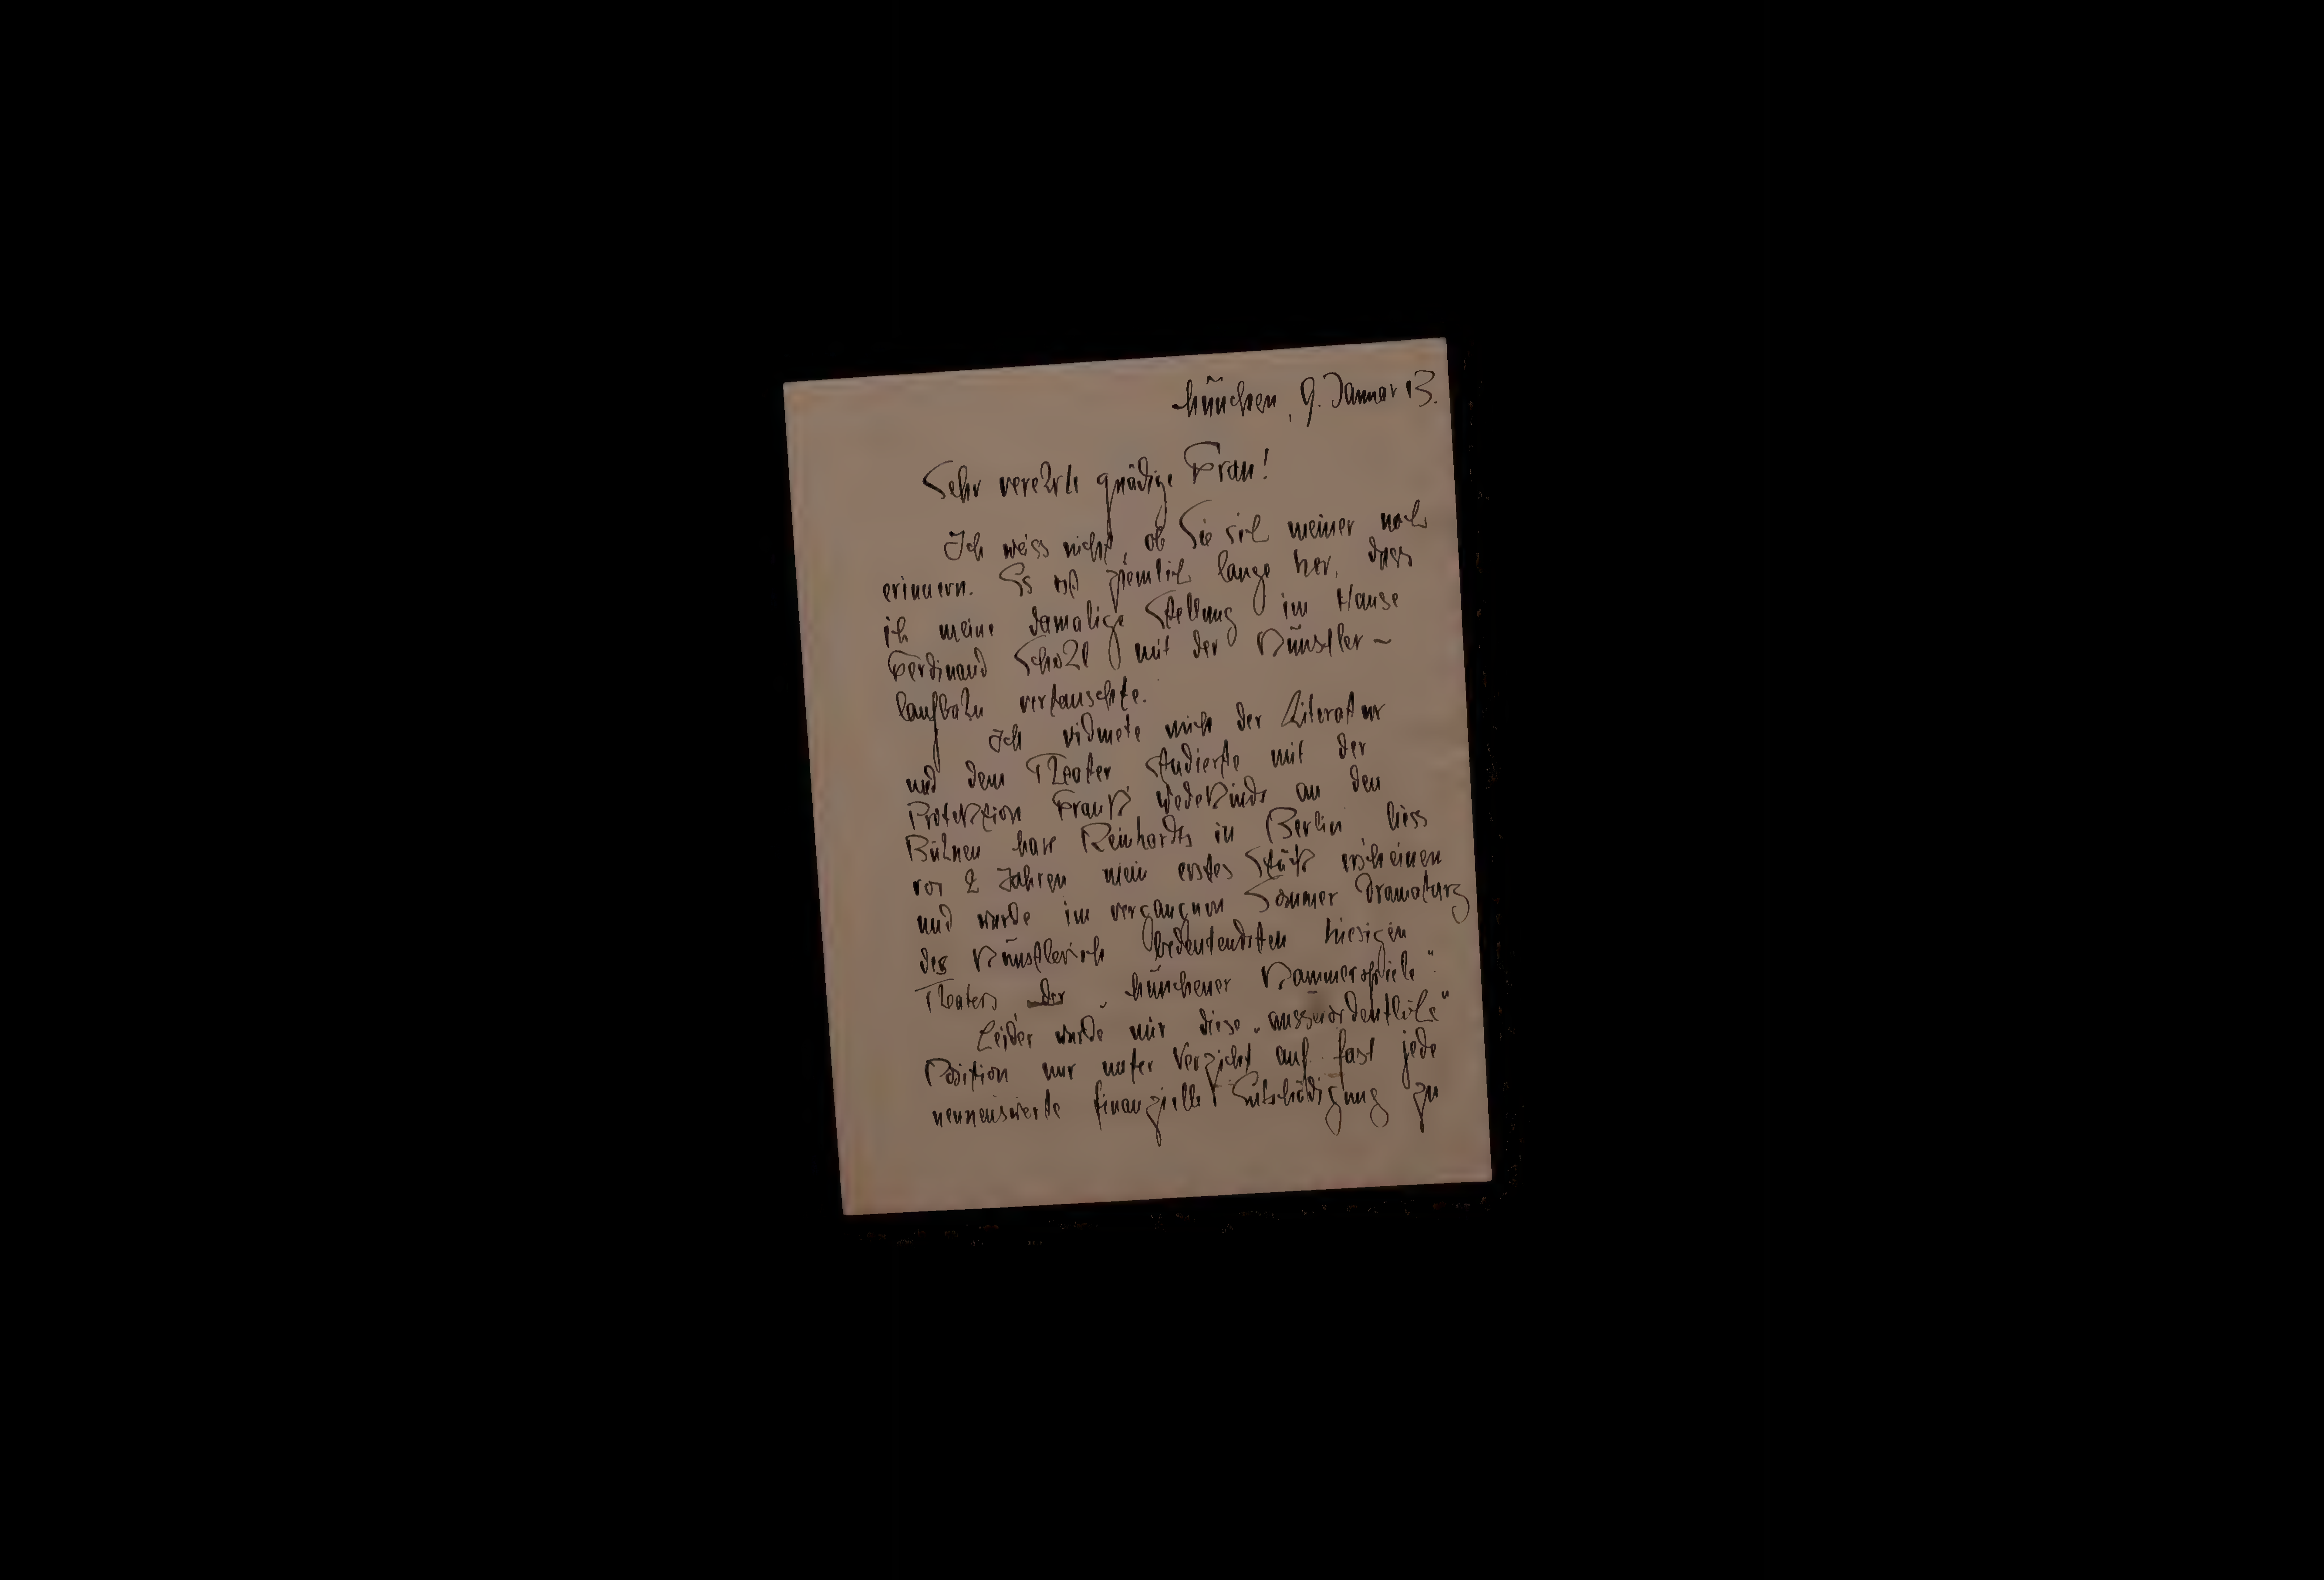 München, 9. Januar 13.
Sehr verehrte gnädige Frau!
Ich weiss nicht, ob Sie sich meiner noch
erinnern. Es ist ziemlich lange her, dass
ich meine damalige Stellung im Hause
Ferdinand Scholl mit der Künstler-
laufbahn vertauschte.
Ich widmete mich der Literatur
und dem Theater, studierte mit der
Protektion Frank Wedekinds an den
Bühnen Max Reinhardts in Berlin, liess
vor 2 Jahren mein erstes Stück erscheinen
und wurde im vergangnen Sommer Dramaturg
des künstlerisch bedeutendsten hiesigen
Theaters der „Münchener Kammerspiele“.
Leider wurde mir diese „ausserordentliche“
Position nur unter Verzicht auf fast jede
nennenswerte finanzielle Entschädigung zu